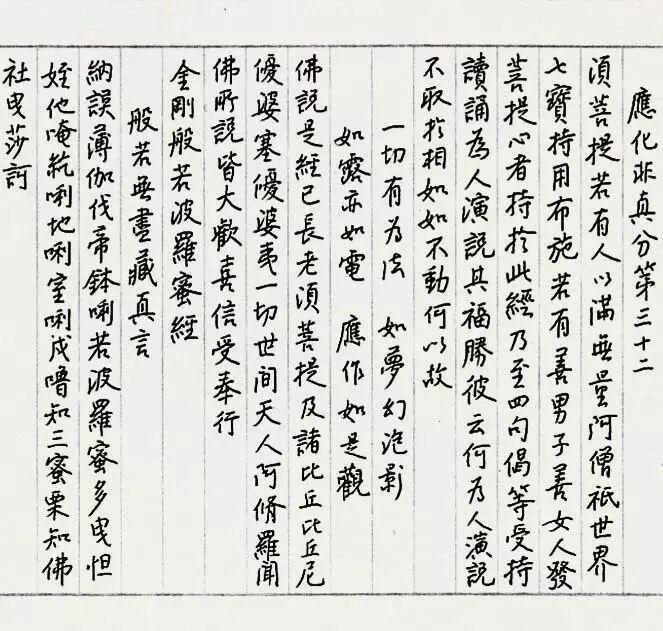 應化非真分第三十二
須菩提若有人以滿無量阿僧祇世界
七寶持用布施若有善男子善女人發
菩提心者持於此經乃至四句偈等受持
讀誦為人演說其福勝彼云何為人演說
不取於相如如不動何以故
一切有為法 如夢幻泡影
如露亦如電 應作如是觀
佛說是經已長老須菩提及諸比丘比丘尼
優婆塞優婆夷一切世間天人阿脩羅聞
佛所說皆大歡喜信受奉行
金剛般若波羅蜜經
般若無盡藏真言
納謨薄伽伐帝鉢唎若波羅蜜多曳怛
姪他唵紇唎地唎室唎戍嚕知三蜜栗知佛
社曳莎訶